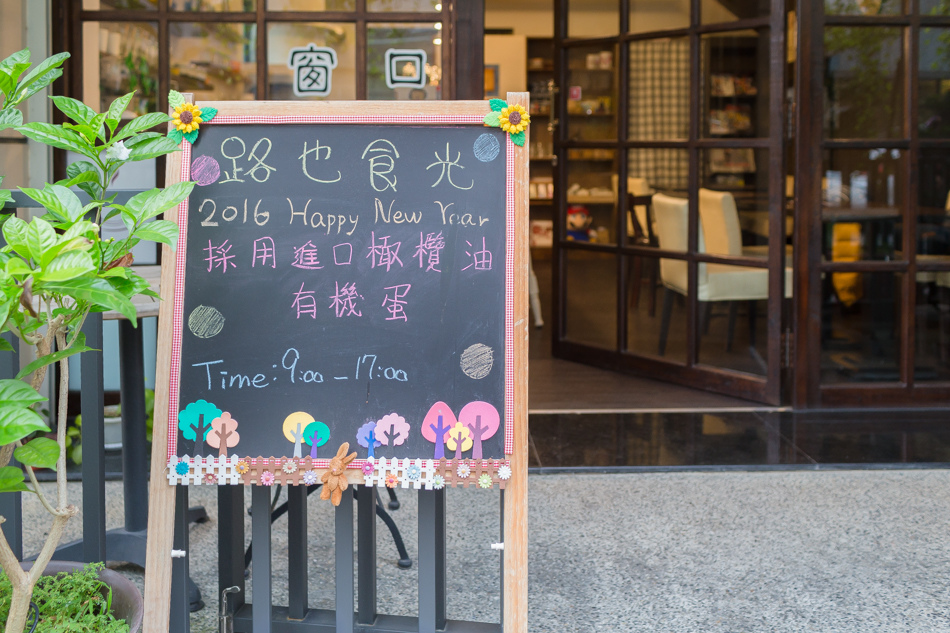 窗 口
路也食光
2016 Happy New Year
採用進口橄欖油
有機蛋
Time: 9:00 - 17:00